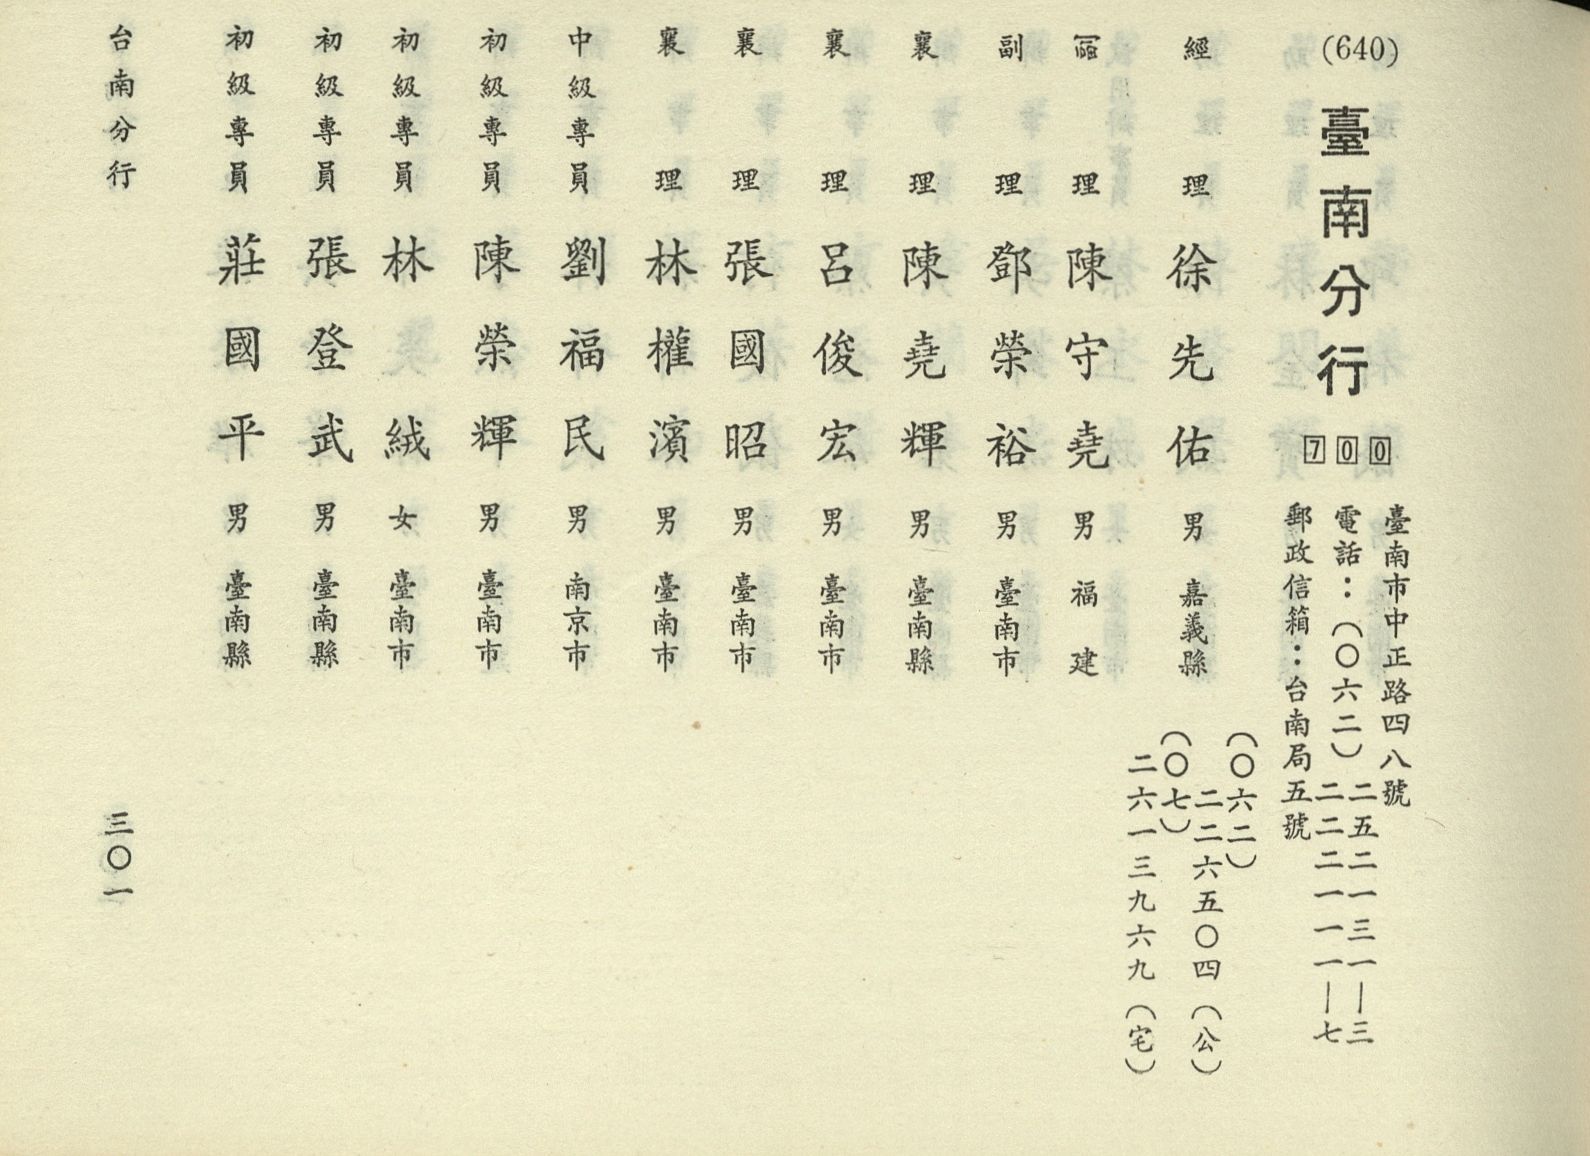 (640)
臺南分行 700
臺南市中正路四八號
電話：(〇六二)二五二一三一—三
二二二一一一—七
郵政信箱：台南局五號
經理 徐先佑 男 嘉義縣 (〇六二)二二六五〇四(公)
(〇七)二六一三九六九(宅)
副理 陳守堯 男 福建
副理 鄧榮裕 男 臺南市
襄理 陳堯輝 男 臺南縣
襄理 呂俊宏 男 臺南市
襄理 張國昭 男 臺南市
襄理 林權濱 男 臺南市
中級專員 劉福民 男 南京市
初級專員 陳榮輝 男 臺南市
初級專員 林絨 女 臺南市
初級專員 張登武 男 臺南縣
初級專員 莊國平 男 臺南縣
台南分行
三〇一